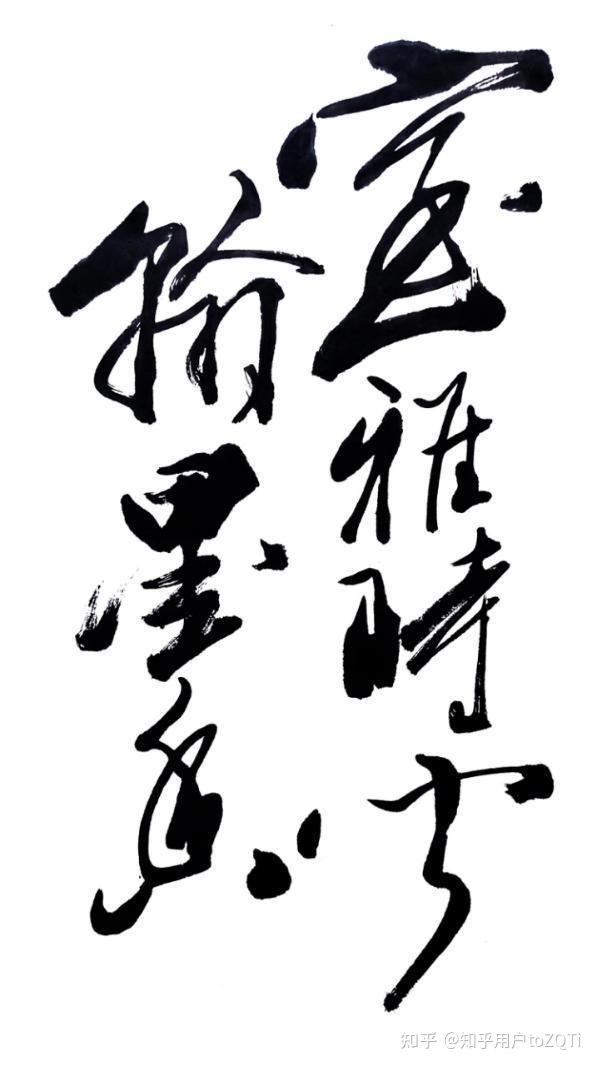 室雅時聞
翰墨香
知乎 @知乎用户toZQTi